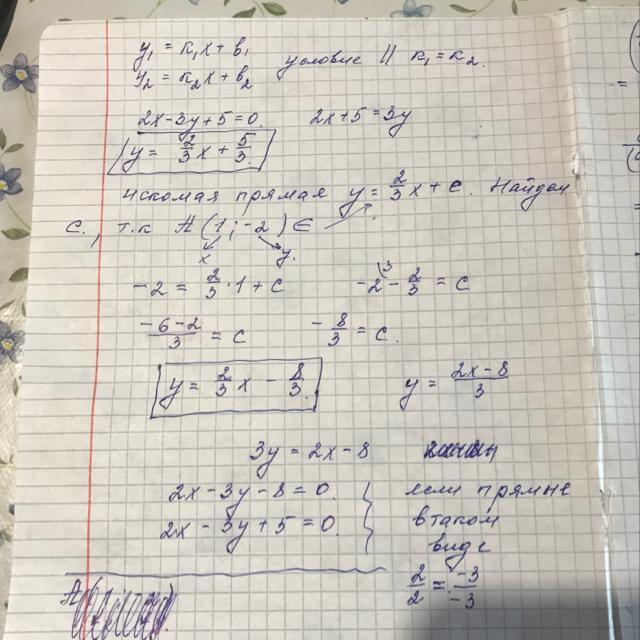 y₁ = к₁x + в₁
y₂ = к₂x + в₂ условие || к₁ = к₂.
2x - 3y + 5 = 0. 2x + 5 = 3y
y = 2/3 x + 5/3.
искомая прямая y = 2/3 x + c. Найдем
c., т.к A (1; -2) ∈
x y.
-2 = 2/3 · 1 + c -2 ³ - 2/3 = c
(-6-2)/3 = c - 8/3 = c.
y = 2/3 x - 8/3. y = (2x-8)/3
3y = 2x - 8
2x - 3y - 8 = 0. если прямые
2x - 3y + 5 = 0. в таком
виде
2/2 = -3/-3
A